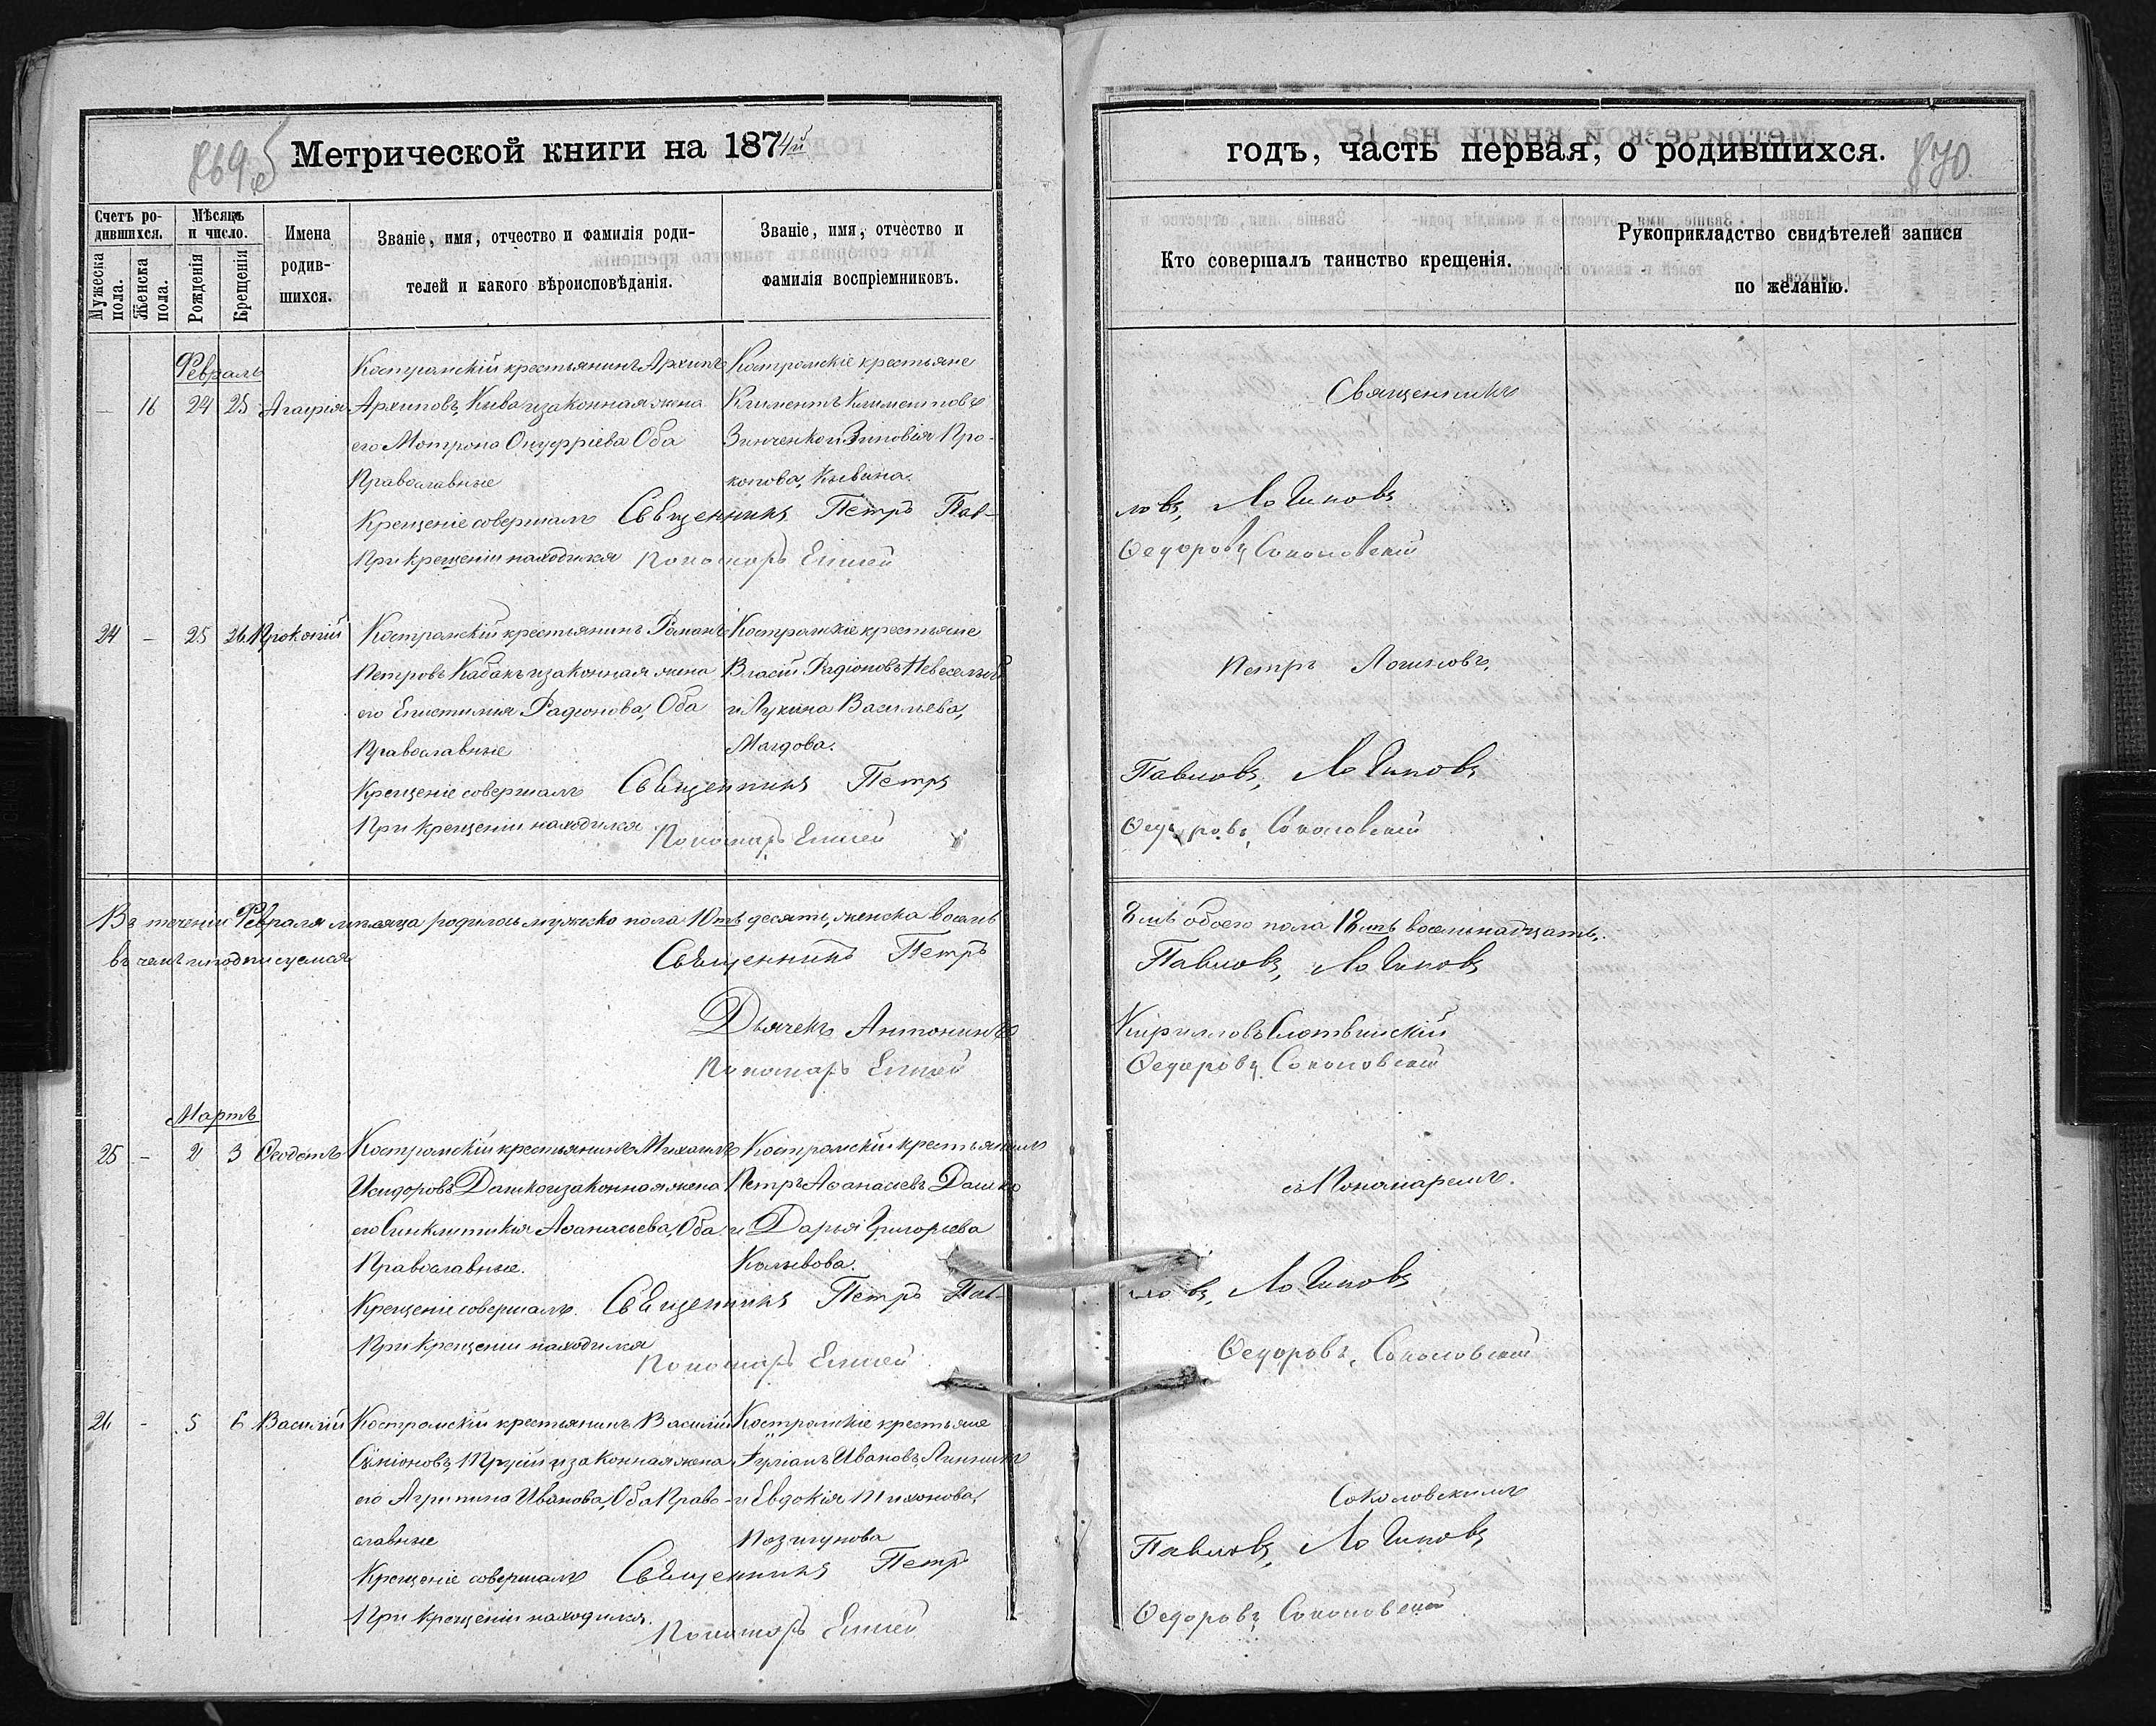 869 об
Метрической книги на 1874й
Счетъ ро-
дившихся.
Мѣсяцъ
и число.
Мужеска
пола.
Женска
пола.
Рожденія
Крещенія
Имена
родив-
шихся.
Званіе, имя, отчество и фамилія роди-
телей и какого вѣроисповѣданія.
Званіе, имя, отчество и
фамилія воспріемниковъ.
Февраль
— 16 24 25 Агафія
Костромскій крестьянинъ Архипъ
Архиповъ, Кива и законная жена
его Мотрона Онуфріева Оба
Православные
Костромскіе крестьяне
Климентъ Климентовъ
Зинченко и Зиновія Про-
копова, Кивина.
Крещеніе совершалъ Священникъ Петръ Пав-
При крещеніи находился Пономарь Елисей
24 — 25 26 Прокопій
Костромскій крестьянинъ Романъ
Петровъ Кабакъ и законная жена
его Епистимія Радіонова, Оба
Православные
Костромскіе крестьяне
Власій Радіоновъ Невеселый
и Лукина Васильева,
Крещеніе совершалъ Священникъ Петръ
При крещеніи находился Пономарь Елисей
Въ теченіи Февраля мѣсяца родилось мужеска пола 10ть десять, женска восемь
въ чемъ и подписуемся
Священникъ Петръ
Дьячекъ Антонинъ
Пономарь Елисей
Мартъ
25 — 2 3 Феодотъ
Костромскій крестьянинъ Михаилъ
Исидоровъ Дашко и законная жена
его Синклитикія Аѳанасьева, Оба
Православные.
Костромскій крестьянинъ
Петръ Аѳанасіевъ Дашко
и Дарья Григорьева
Крещеніе совершалъ Священникъ Петръ Пав-
При крещеніи находился Пономарь Елисей
26 — 5 6 Василій
Костромскій крестьянинъ Василій
Сѵмоновъ, и законная жена
его Агрипина Иванова, Оба Право-
славные
Костромскіе крестьяне
Гурiанъ Ивановъ
и Евдокія Тихонова,
Крещеніе совершалъ Священникъ Петръ
При крещеніи находился. Пономарь Елисей
годъ, часть первая, о родившихся.
870.
Кто совершалъ таинство крещенія.
Рукоприкладство свидѣтелей записи
по желанію.
Священникъ
ловъ, Логиновъ
Ѳедоровъ Соколовскій
Петръ Логиновъ.
Павловъ, Логиновъ
Ѳедоровъ, Соколовскій
8мь обоего пола 18ть восемнадцать.
Павловъ, Логиновъ
Кирилловъ Слотвинскій
Ѳедоровъ Соколовскій
съ Пономаремъ.
ловъ, Логиновъ
Ѳедоровъ, Соколовскій
Соколовскимъ
Павловъ, Логиновъ
Ѳедоровъ Соколовскій